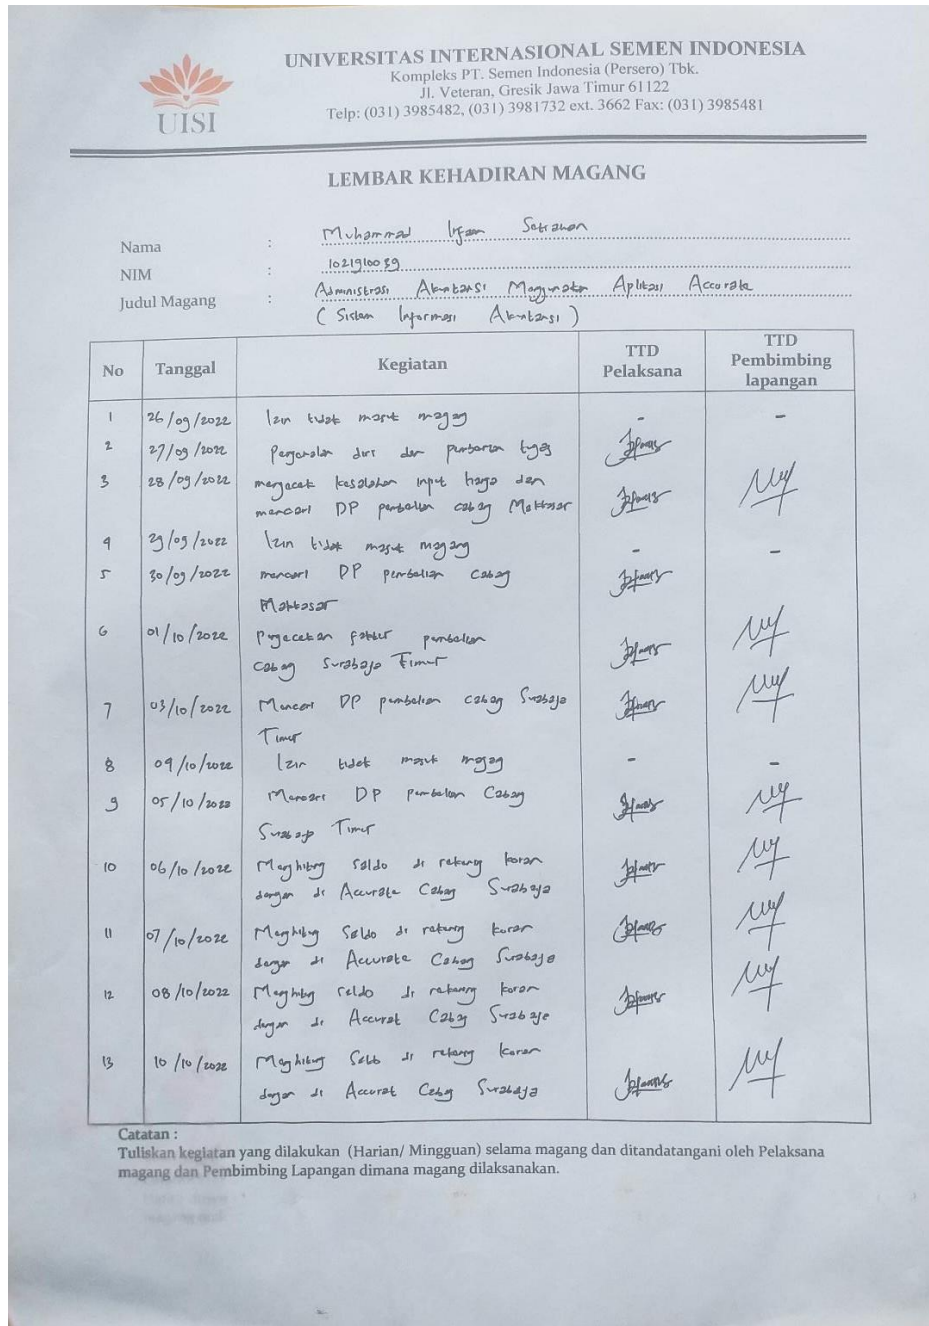 UNIVERSITAS INTERNASIONAL SEMEN INDONESIA
Kompleks PT. Semen Indonesia (Persero) Tbk.
Jl. Veteran, Gresik Jawa Timur 61122
Telp: (031) 3985482, (031) 3981732 ext. 3662 Fax: (031) 3985481
UISI
LEMBAR KEHADIRAN MAGANG
Nama : Muhammad Irfan Setiawan
NIM : 1021910039
Judul Magang : Administrasi Akuntansi Menggunakan Aplikasi Accurate
(Sistem Informasi Akuntansi)
No Tanggal Kegiatan TTD Pelaksana TTD Pembimbing lapangan
1 26/09/2022 Izin tidak masuk magang - -
2 27/09/2022 Pengenalan diri dan pemberian tugas
3 28/09/2022 mengecek kesalahan input harga dan
mencari DP pembelian cabang Makassar
4 29/09/2022 Izin tidak masuk magang - -
5 30/09/2022 mencari DP pembelian cabang
Makassar
6 01/10/2022 Pengecekan faktur pembelian
cabang Surabaya Timur
7 03/10/2022 Mencari DP pembelian cabang Surabaya
Timur
8 04/10/2022 Izin tidak masuk magang - -
9 05/10/2022 Mencari DP pembelian Cabang
Surabaya Timur
10 06/10/2022 Menghitung saldo di rekening koran
dengan di Accurate Cabang Surabaya
11 07/10/2022 Menghitung Saldo di rekening koran
dengan di Accurate Cabang Surabaya
12 08/10/2022 Menghitung saldo di rekening koran
dengan di Accurat Cabang Surabaya
13 10/10/2022 Menghitung Saldo di rekening koran
dengan di Accurat Cabang Surabaya
Catatan :
Tuliskan kegiatan yang dilakukan (Harian/ Mingguan) selama magang dan ditandatangani oleh Pelaksana
magang dan Pembimbing Lapangan dimana magang dilaksanakan.